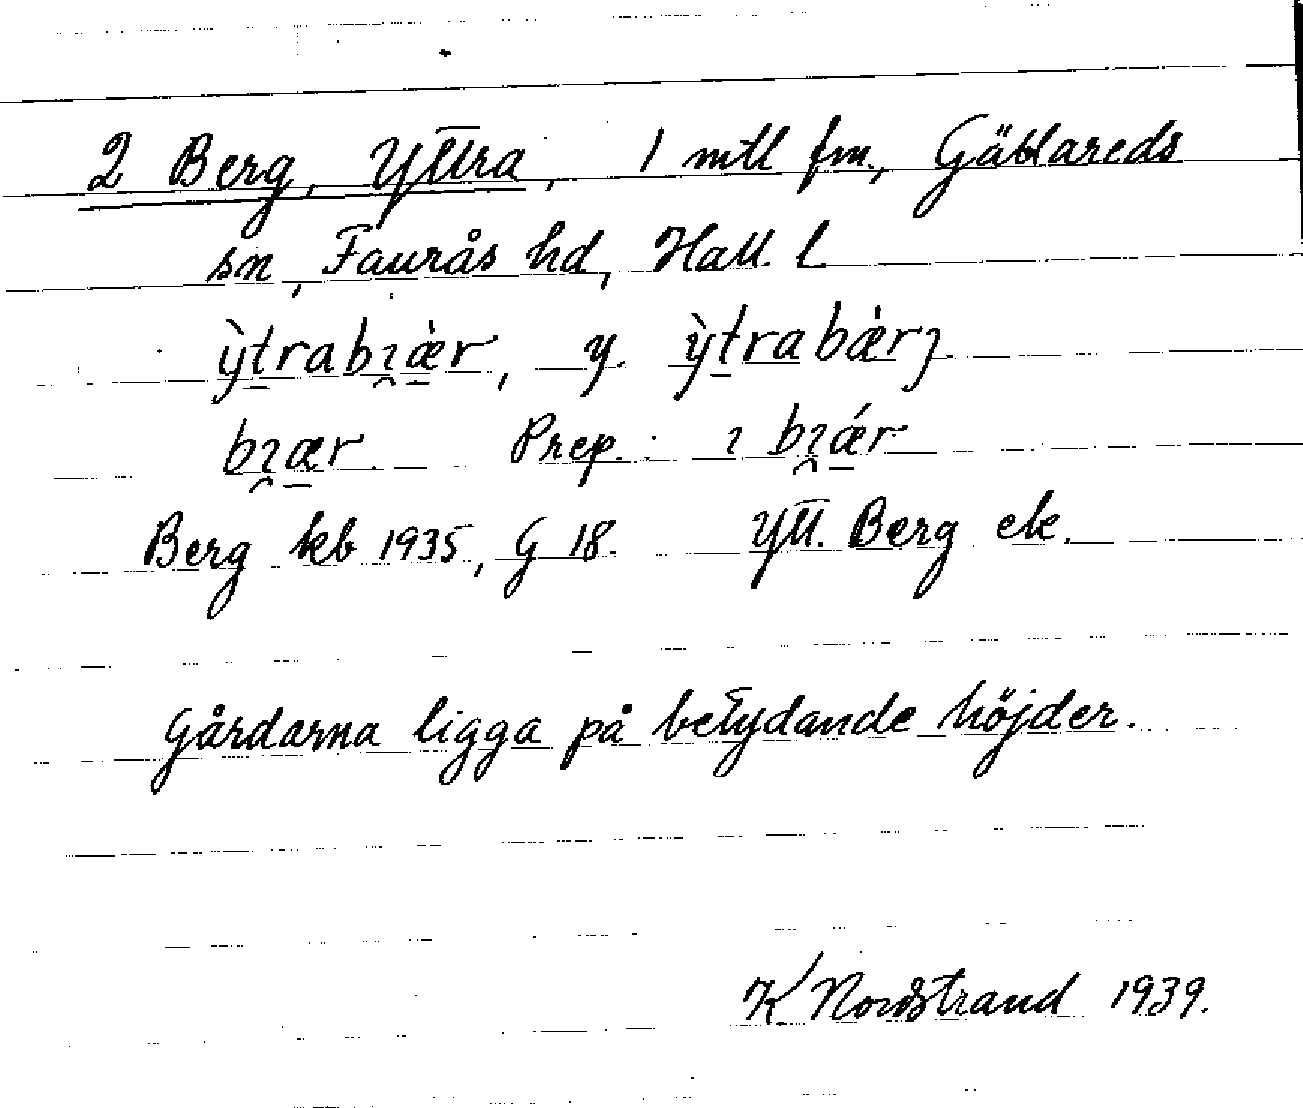 2 Berg, Yttra, 1 mtl fm., Gällareds
sn, Faurås hd, Hall. l
ỳt̠rabı̯æ̠̀r, y. ỳt̠rabæ̀rȷ
bı̯æ̠r. Prep.: ı bı̯ǽ̠r
Berg kb 1935, G 18. Ytt. Berg ek.
Gårdarna ligga på betydande höjder.
K Nordstrand 1939.